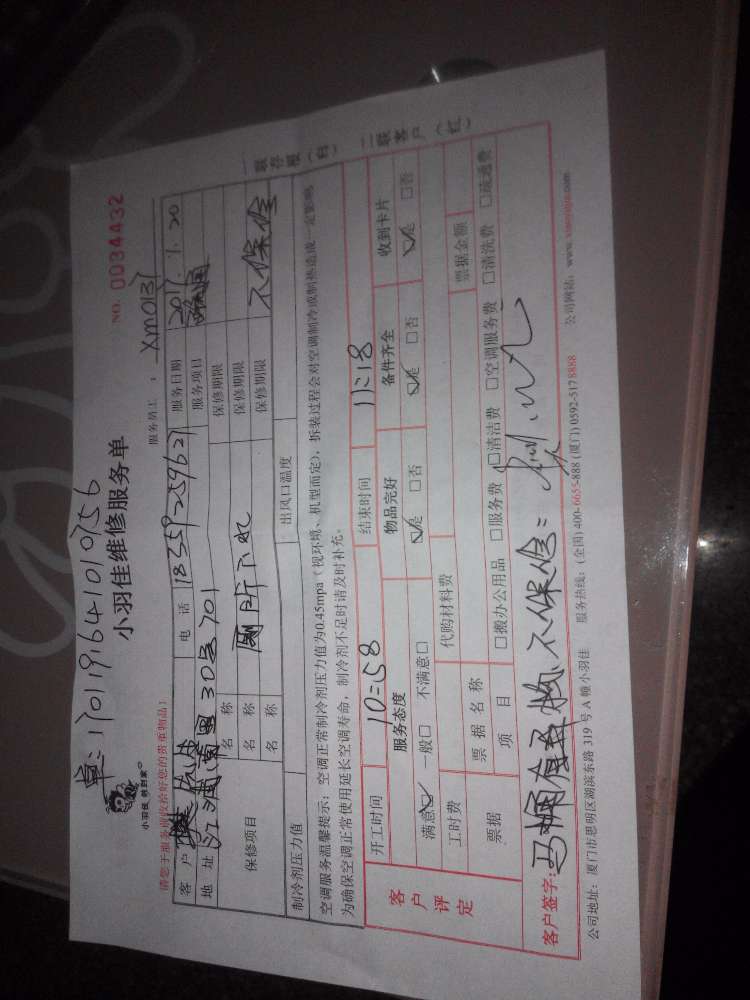 单:1701191641010756
小羽佳维修服务单
NO. 0034432
小羽佳 特到家
服务员工: Xm0131
请您于服务前收拾好您的贵重物品!
客户 电话 18359259621 服务日期 2017.1.20
地址 30号701 服务项目
保修项目
名称 保修期限
名称 厕所下水 保修期限
名称 保修期限 不保修
制冷剂压力值 出风口温度
空调服务温馨提示:空调正常制冷剂压力值为0.45mpa(视环境、机型而定),拆装过程会对空调制冷或制热造成一定影响
为确保空调正常使用延长空调寿命,制冷剂不足时请及时补充。
一联存根(白) 二联客户(红)
客户评定
开工时间 10:58 结束时间 11:18
服务态度 物品完好 备件齐全 收到卡片
满意☑ 一般□ 不满意□ ☑是 □否 ☑是 □否 ☑是 □否
工时费 代购材料费
票据 票据名称 票据金额
项目 □搬办公用品 □服务费 □清洁费 □空调服务费 □清洗费 □疏通费
客户签字: 马桶 不保修:
公司地址:厦门市思明区湖滨东路 319 号 A 幢小羽佳 服务热线:(全国) 400-665-888 (厦门) 0592-5178888 公司网站:www.xiaoyujia.com